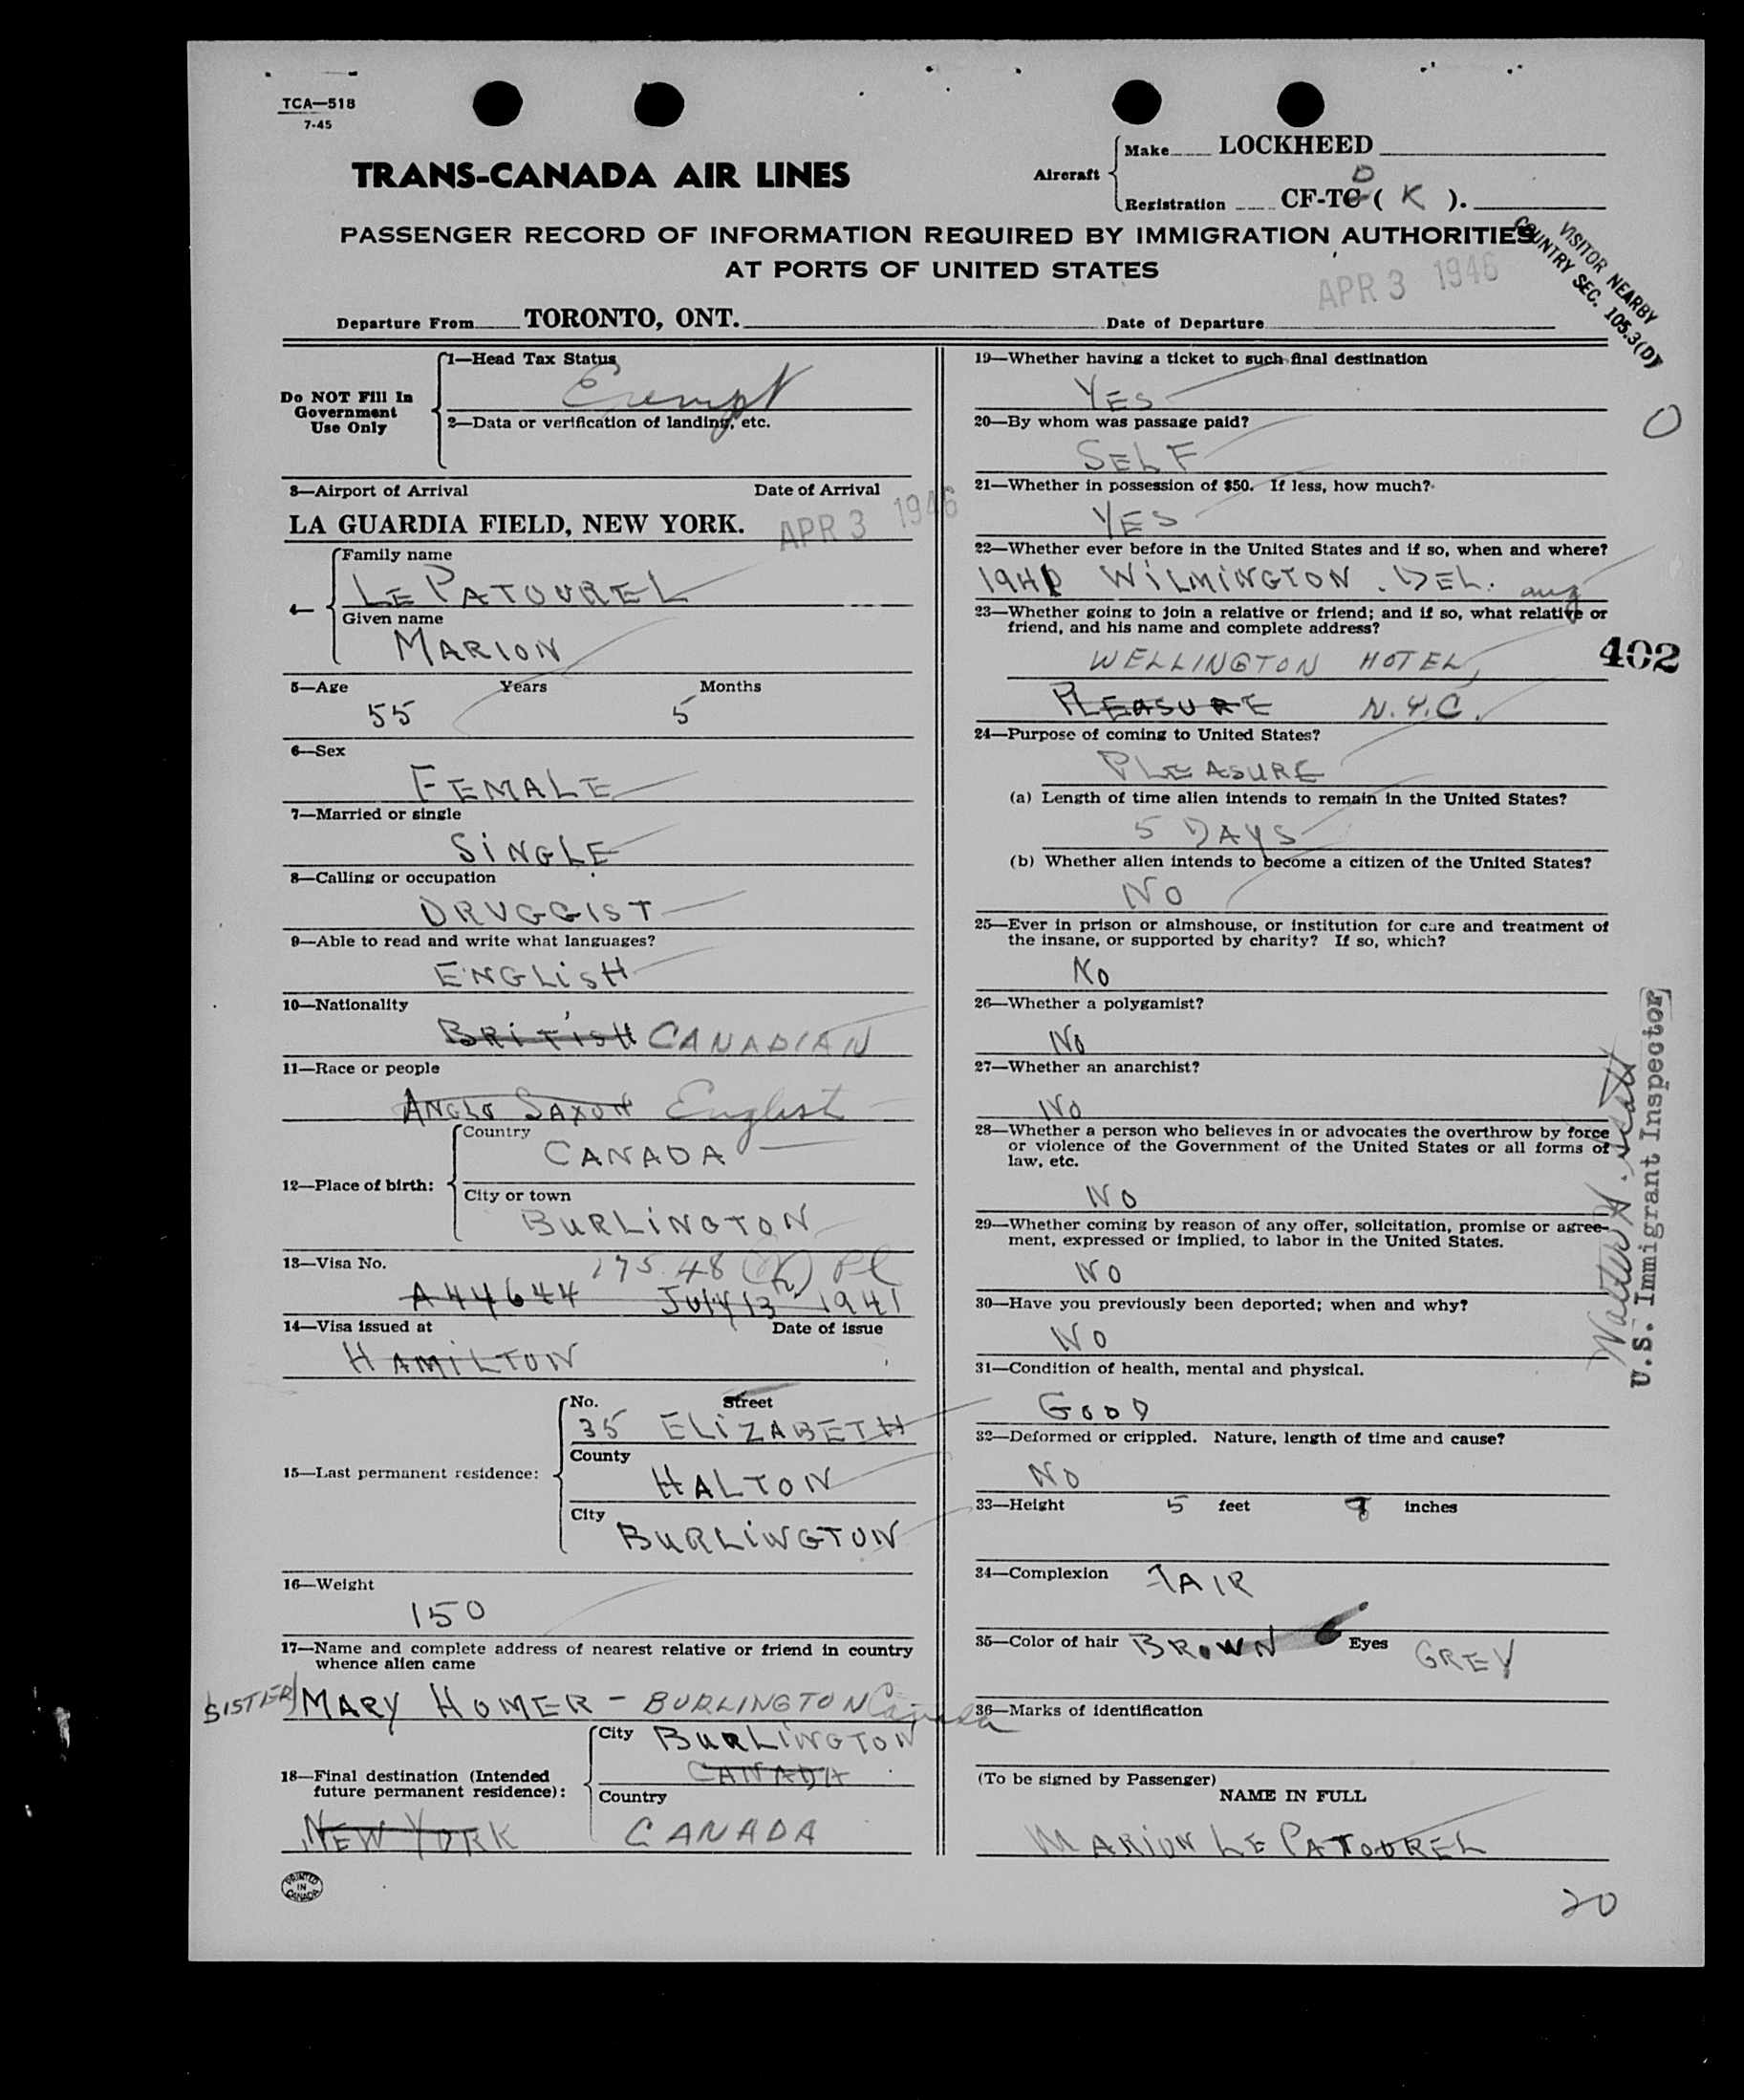 TCA—518
7-45
TRANS-CANADA AIR LINES
Aircraft
Make LOCKHEED
Registration CF-TC D ( K ).
PASSENGER RECORD OF INFORMATION REQUIRED BY IMMIGRATION AUTHORITIES
AT PORTS OF UNITED STATES
VISITOR NEARBY
COUNTRY SEC. 105.3(D)
Departure From TORONTO, ONT. Date of Departure APR 3 1946
Do NOT Fill In
Government
Use Only
1—Head Tax Status
Exempt
2—Data or verification of landing, etc.
3—Airport of Arrival Date of Arrival
LA GUARDIA FIELD, NEW YORK. APR 3 1946
4—
Family name
LE PATOUREL
Given name
MARION
5—Age Years Months
55 5
6—Sex
FEMALE
7—Married or single
SINGLE
8—Calling or occupation
DRUGGIST
9—Able to read and write what languages?
ENGLISH
10—Nationality
BRITISH CANADIAN
11—Race or people
ANGLO SAXON English
12—Place of birth:
Country
CANADA
City or town
BURLINGTON
13—Visa No.
175.48
A44644 JULY 13 1941
14—Visa issued at Date of issue
HAMILTON
15—Last permanent residence:
No. Street
35 ELIZABETH
County
HALTON
City
BURLINGTON
16—Weight
150
17—Name and complete address of nearest relative or friend in country
whence alien came
SISTER MARY HOMER - BURLINGTON Canada
18—Final destination (Intended
future permanent residence):
City BURLINGTON
CANADA
Country
NEW YORK CANADA
PRINTED
IN
CANADA
19—Whether having a ticket to such final destination
YES
20—By whom was passage paid?
SELF
0
21—Whether in possession of $50. If less, how much?
YES
22—Whether ever before in the United States and if so, when and where?
WILMINGTON. DEL. aug
23—Whether going to join a relative or friend; and if so, what relative or
friend, and his name and complete address?
WELLINGTON HOTEL,
402
PLEASURE N.Y.C.
24—Purpose of coming to United States?
PLEASURE
(a) Length of time alien intends to remain in the United States?
5 DAYS
(b) Whether alien intends to become a citizen of the United States?
NO
25—Ever in prison or almshouse, or institution for care and treatment of
the insane, or supported by charity? If so, which?
NO
26—Whether a polygamist?
NO
27—Whether an anarchist?
NO
28—Whether a person who believes in or advocates the overthrow by force
or violence of the Government of the United States or all forms of
law, etc.
NO
29—Whether coming by reason of any offer, solicitation, promise or agree-
ment, expressed or implied, to labor in the United States.
NO
30—Have you previously been deported; when and why?
NO
31—Condition of health, mental and physical.
GOOD
32—Deformed or crippled. Nature, length of time and cause?
NO
33—Height 5 feet inches
34—Complexion FAIR
35—Color of hair BROWN Eyes GREY
36—Marks of identification
(To be signed by Passenger)
NAME IN FULL
MARION LE PATOUREL
20
Walter H.
U.S. Immigrant Inspector